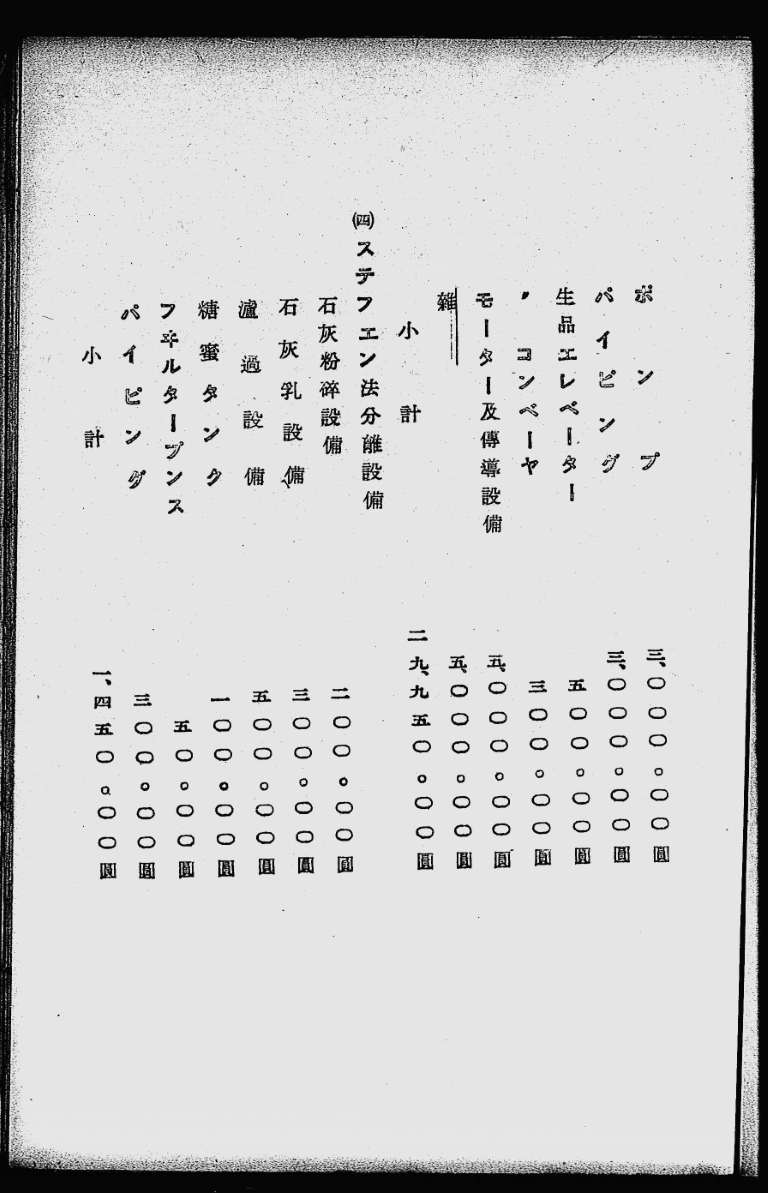 ポンプ 三、〇〇〇。〇〇圓
パイピング 三、〇〇〇。〇〇圓
生品エレベーター 五〇〇。〇〇圓
〃コンベーヤ 三〇〇。〇〇圓
モーター及傳導設備 五、〇〇〇。〇〇圓
雜 五、〇〇〇。〇〇圓
小計 二九、九五〇。〇〇圓
㈣ステフエン法分離設備
石灰粉碎設備 二〇〇。〇〇圓
石灰乳設備 三〇〇。〇〇圓
瀘過設備 五〇〇。〇〇圓
糖蜜タンク 一〇〇。〇〇圓
フヰルタープンス 五〇。〇〇圓
パイピング 三〇〇。〇〇圓
小計 一、四五〇。〇〇圓